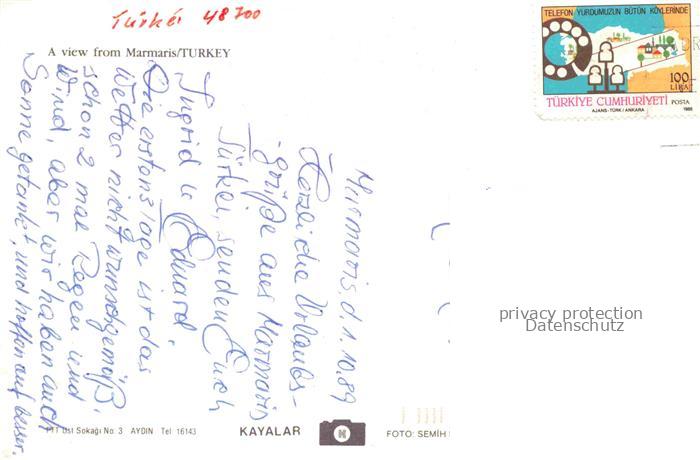 Türkei 48700
A view from Marmaris/TURKEY
Marmaris d. 1.10.89
Herzliche Urlaubs-
grüße aus Marmaris
Türkei, senden Euch
Ingrid u Eduard.
Die ersten Tage ist das
Wetter nicht wunschgemäß.
schon 2 mal Regen und
Wind, aber wir haben auch
Sonne getankt, und hoffen auf besser.
TELEFON YURDUMUZUN BÜTÜN KÖYLERİNDE
100
LİRA
TÜRKİYE CUMHURİYETİ POSTA
AJANS-TÜRK/ANKARA
privacy protection
Datenschutz
PTT Üst Sokağı No. 3 AYDIN Tel: 16143
KAYALAR
K
FOTO: SEMİH